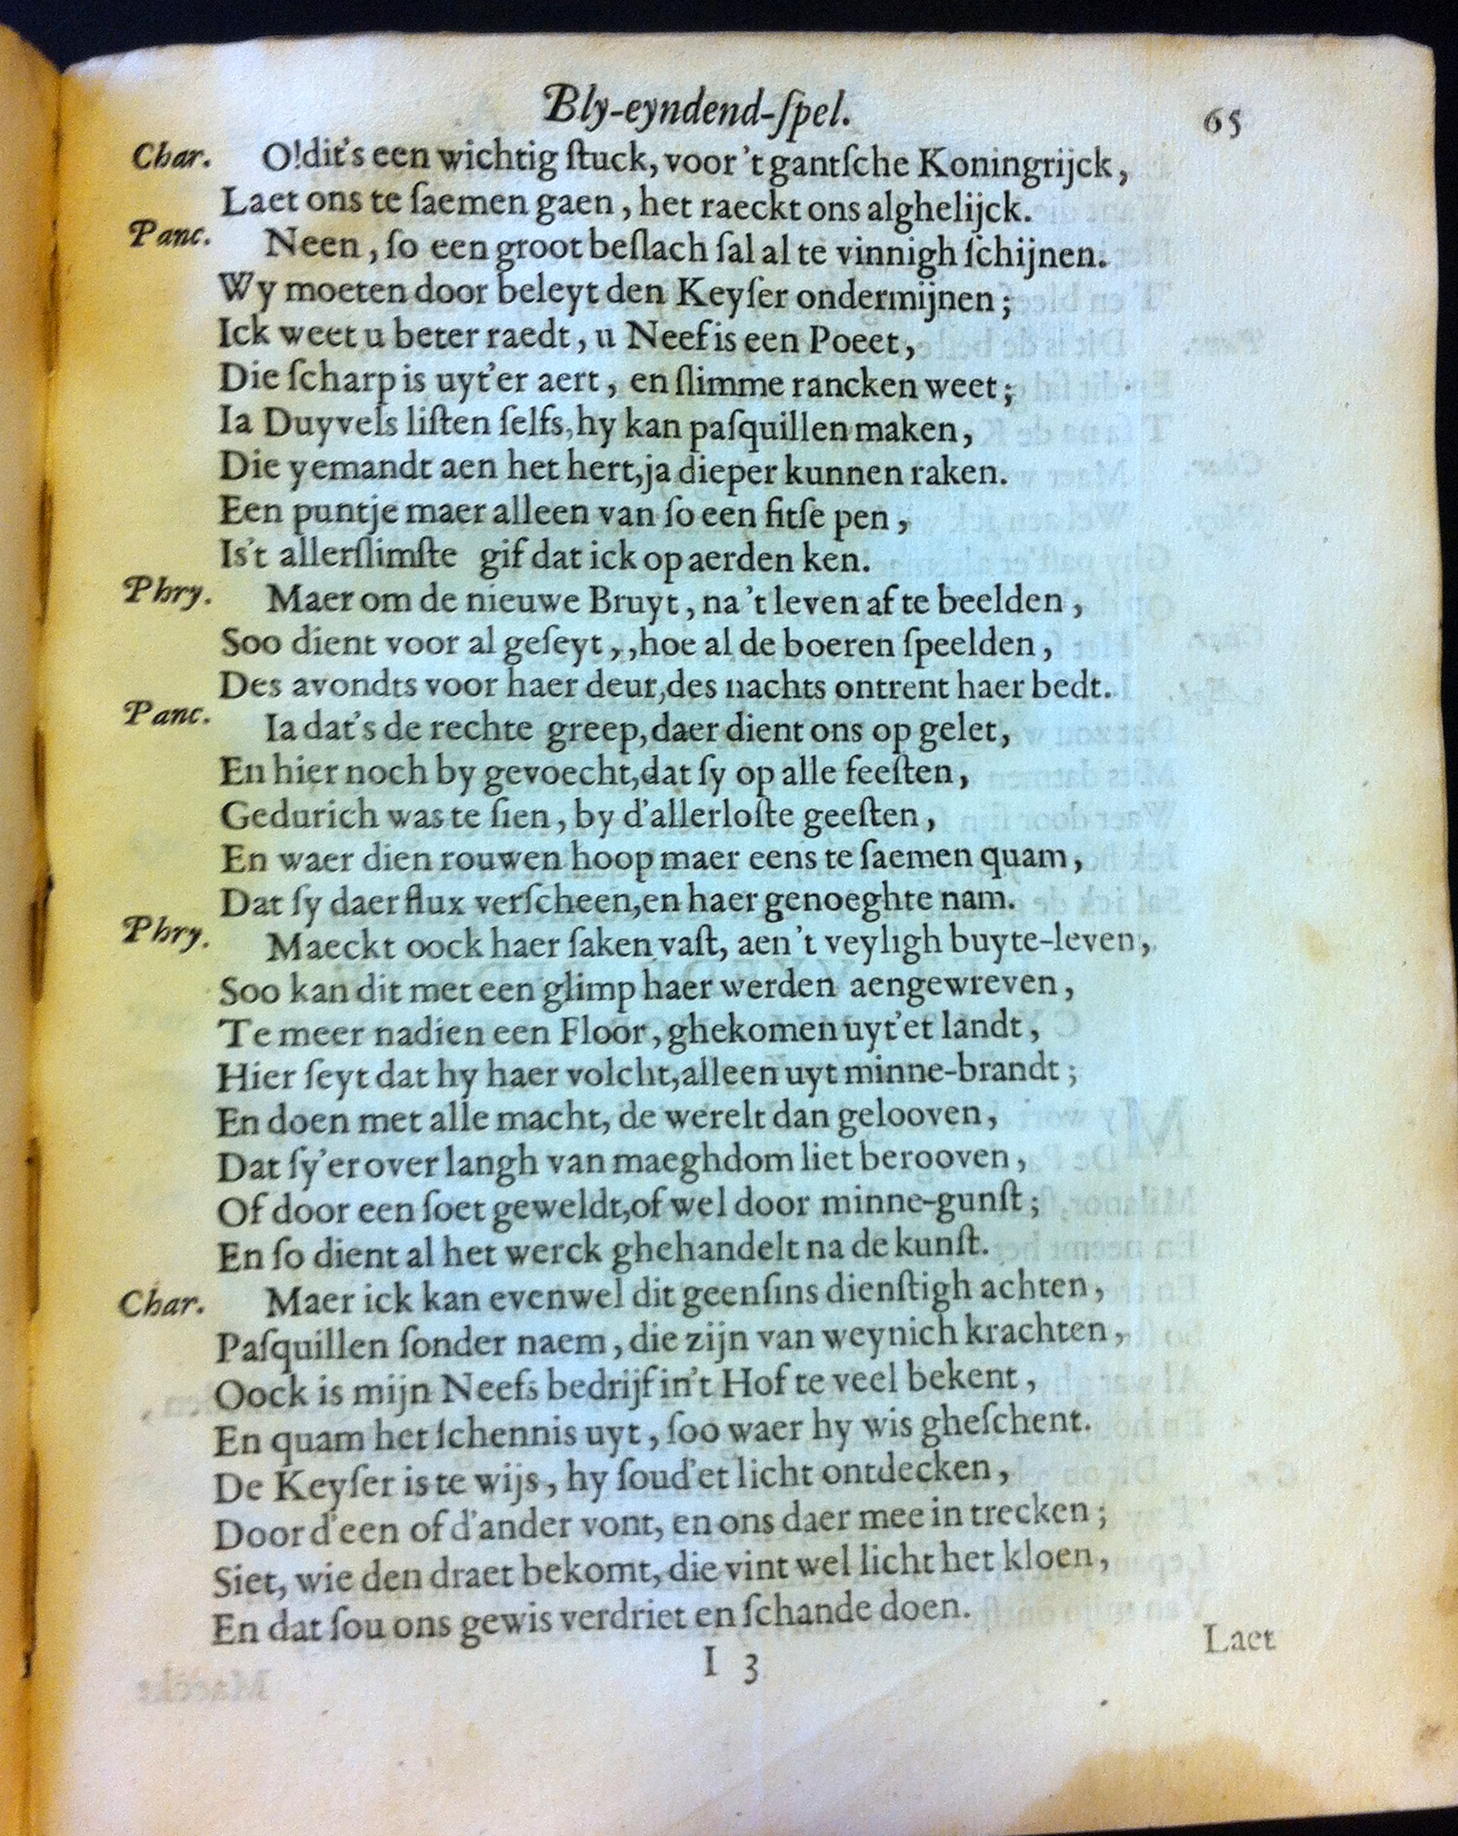 Bly-eyndend-ſpel. 65
Char. O!dit's een wichtig ſtuck, voor 't gantſche Koningrijck,
Laet ons te ſaemen gaen, het raeckt ons alghelijck.
Panc. Neen, ſo een groot beſlach ſal al te vinnigh ſchijnen.
Wy moeten door beleyt den Keyſer ondermijnen;
Ick weet u beter raedt, u Neef is een Poeet,
Die ſcharp is uyt'er aert, en ſlimme rancken weet;
Ia Duyvels liſten ſelfs, hy kan paſquillen maken,
Die yemandt aen het hert, ja dieper kunnen raken.
Een puntje maer alleen van ſo een fitſe pen,
Is't allerſlimſte gif dat ick op aerden ken.
Phry. Maer om de nieuwe Bruyt, na 't leven af te beelden,
Soo dient voor al geſeyt,,hoe al de boeren ſpeelden,
Des avondts voor haer deur, des nachts ontrent haer bedt.
Panc. Ia dat's de rechte greep, daer dient ons op gelet,
En hier noch by gevoecht, dat ſy op alle feeſten,
Gedurich was te ſien, by d'allerloſte geeſten,
En waer dien rouwen hoop maer eens te ſaemen quam,
Dat ſy daer flux verſcheen, en haer genoeghte nam.
Phry. Maeckt oock haer ſaken vaſt, aen 't veyligh buyte-leven,
Soo kan dit met een glimp haer werden aengewreven,
Te meer nadien een Floor, ghekomen uyt'et landt,
Hier ſeyt dat hy haer volcht, alleen uyt minne-brandt;
En doen met alle macht, de werelt dan gelooven,
Dat ſy'er over langh van maeghdom liet berooven,
Of door een ſoet geweldt, of wel door minne-gunſt;
En ſo dient al het werck ghehandelt na de kunſt.
Char. Maer ick kan evenwel dit geenſins dienſtigh achten,
Paſquillen ſonder naem, die zijn van weynich krachten,
Oock is mijn Neefs bedrijf in't Hof te veel bekent,
En quam het ſchennis uyt, ſoo waer hy wis gheſchent.
De Keyſer is te wijs, hy ſoud'et licht ontdecken,
Door d'een of d'ander vont, en ons daer mee in trecken;
Siet, wie den draet bekomt, die vint wel licht het kloen,
En dat ſou ons gewis verdriet en ſchande doen.
I 3 Laet